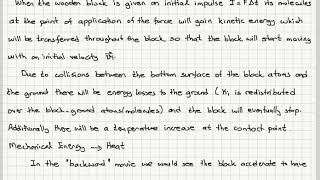 When the wooden block is given an initial impulse I=FΔt its molecules
at the point of application of the force will gain kinetic energy which
will be transferred throughout the block, so that the block will start moving
with an initial velocity
Due to collisions between the bottom surface of the block atoms and
the ground there will be energy losses to the ground ( is redistributed
over the block-ground atoms/molecules) and the block will eventually stop.
Additionally there will be a temperature increase at the contact point.
Mechanical Energy → Heat
In the "backward" movie we would see the block accelerate to have